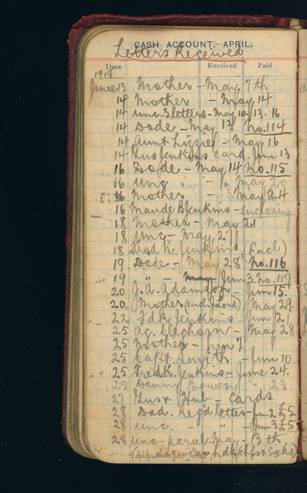 CASH ACCOUNT. APRIL.
Letters Received
Date Received Paid
1918
June 13 Mother - May 7th
14 Mother - May 14
14 Unc 3 letters - May 10. 13. 16
14 Dode - May 13 No. 114
14 Aunt Lizzie - May 16
14 Gus Jenkins card Jun 13
16 Dode - May 14 No. 115
16 Unc - " May 20
16 Mother - May 24
16 Maude B Jenkins - enclosing
18 Mother - May 21
18 Unc - May 21
18 Fred K. Jenkins (incl)
19 Dode - May 28 No. 116
19 " - Jun 3. No. 117
20 J. A. Adamson Jun 15
20 Mother (and Card) May 29
22 Fdk Jenkins - Jun 21
25 Ag. Cleghorn - May 28
25 Mother - Jun 7
25 Capt. Smith - Jun 10
25 Fredk. Jenkins - June 24.
25 Danny Bowen - " 23
27 Gus & Hub - Cards
28 Dad. Reg'd letter - Jun 2 £5
28 Unc. " " - Jun 3 £5
28 Unc - parcel May 13th